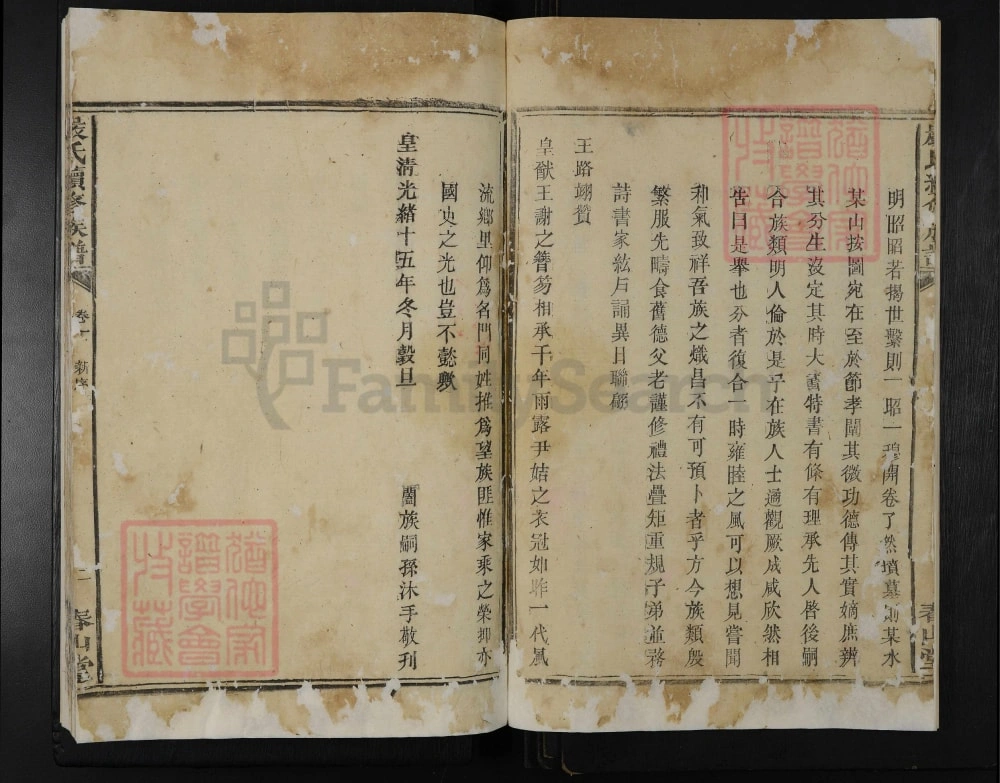 明昭昭若揭世繫則一昭一穆開卷了然墳墓則某水
某山按圖宛在至於節孝闡其微功德傳其實嫡庶辨
其分生沒定其時大書特書有條有理承先人啓後嗣
合族類明人倫於是乎在族人士遹觀厥成咸欣然相
告曰是舉也分者復合一時雍睦之風可以想見嘗聞
和氣致祥吾族之熾昌不有可預卜者乎方今族類殷
繁服先疇食舊德父老謹修禮法疊矩重規子弟並務
詩書家絃戶誦異日聯翩
王路翊贊
皇猷王謝之簪笏相承千年雨露尹姞之衣冠如昨一代風
流鄉里仰爲名門同姓推爲望族匪惟家乘之榮抑亦
國史之光也豈不懿歟
皇清光緒十五年冬月穀旦
闔族嗣孫沐手敬刊
嚴氏續修族譜
卷十 新序
一
春山堂
春山堂
譜學會
特藏
譜學會
特藏
FamilySearch